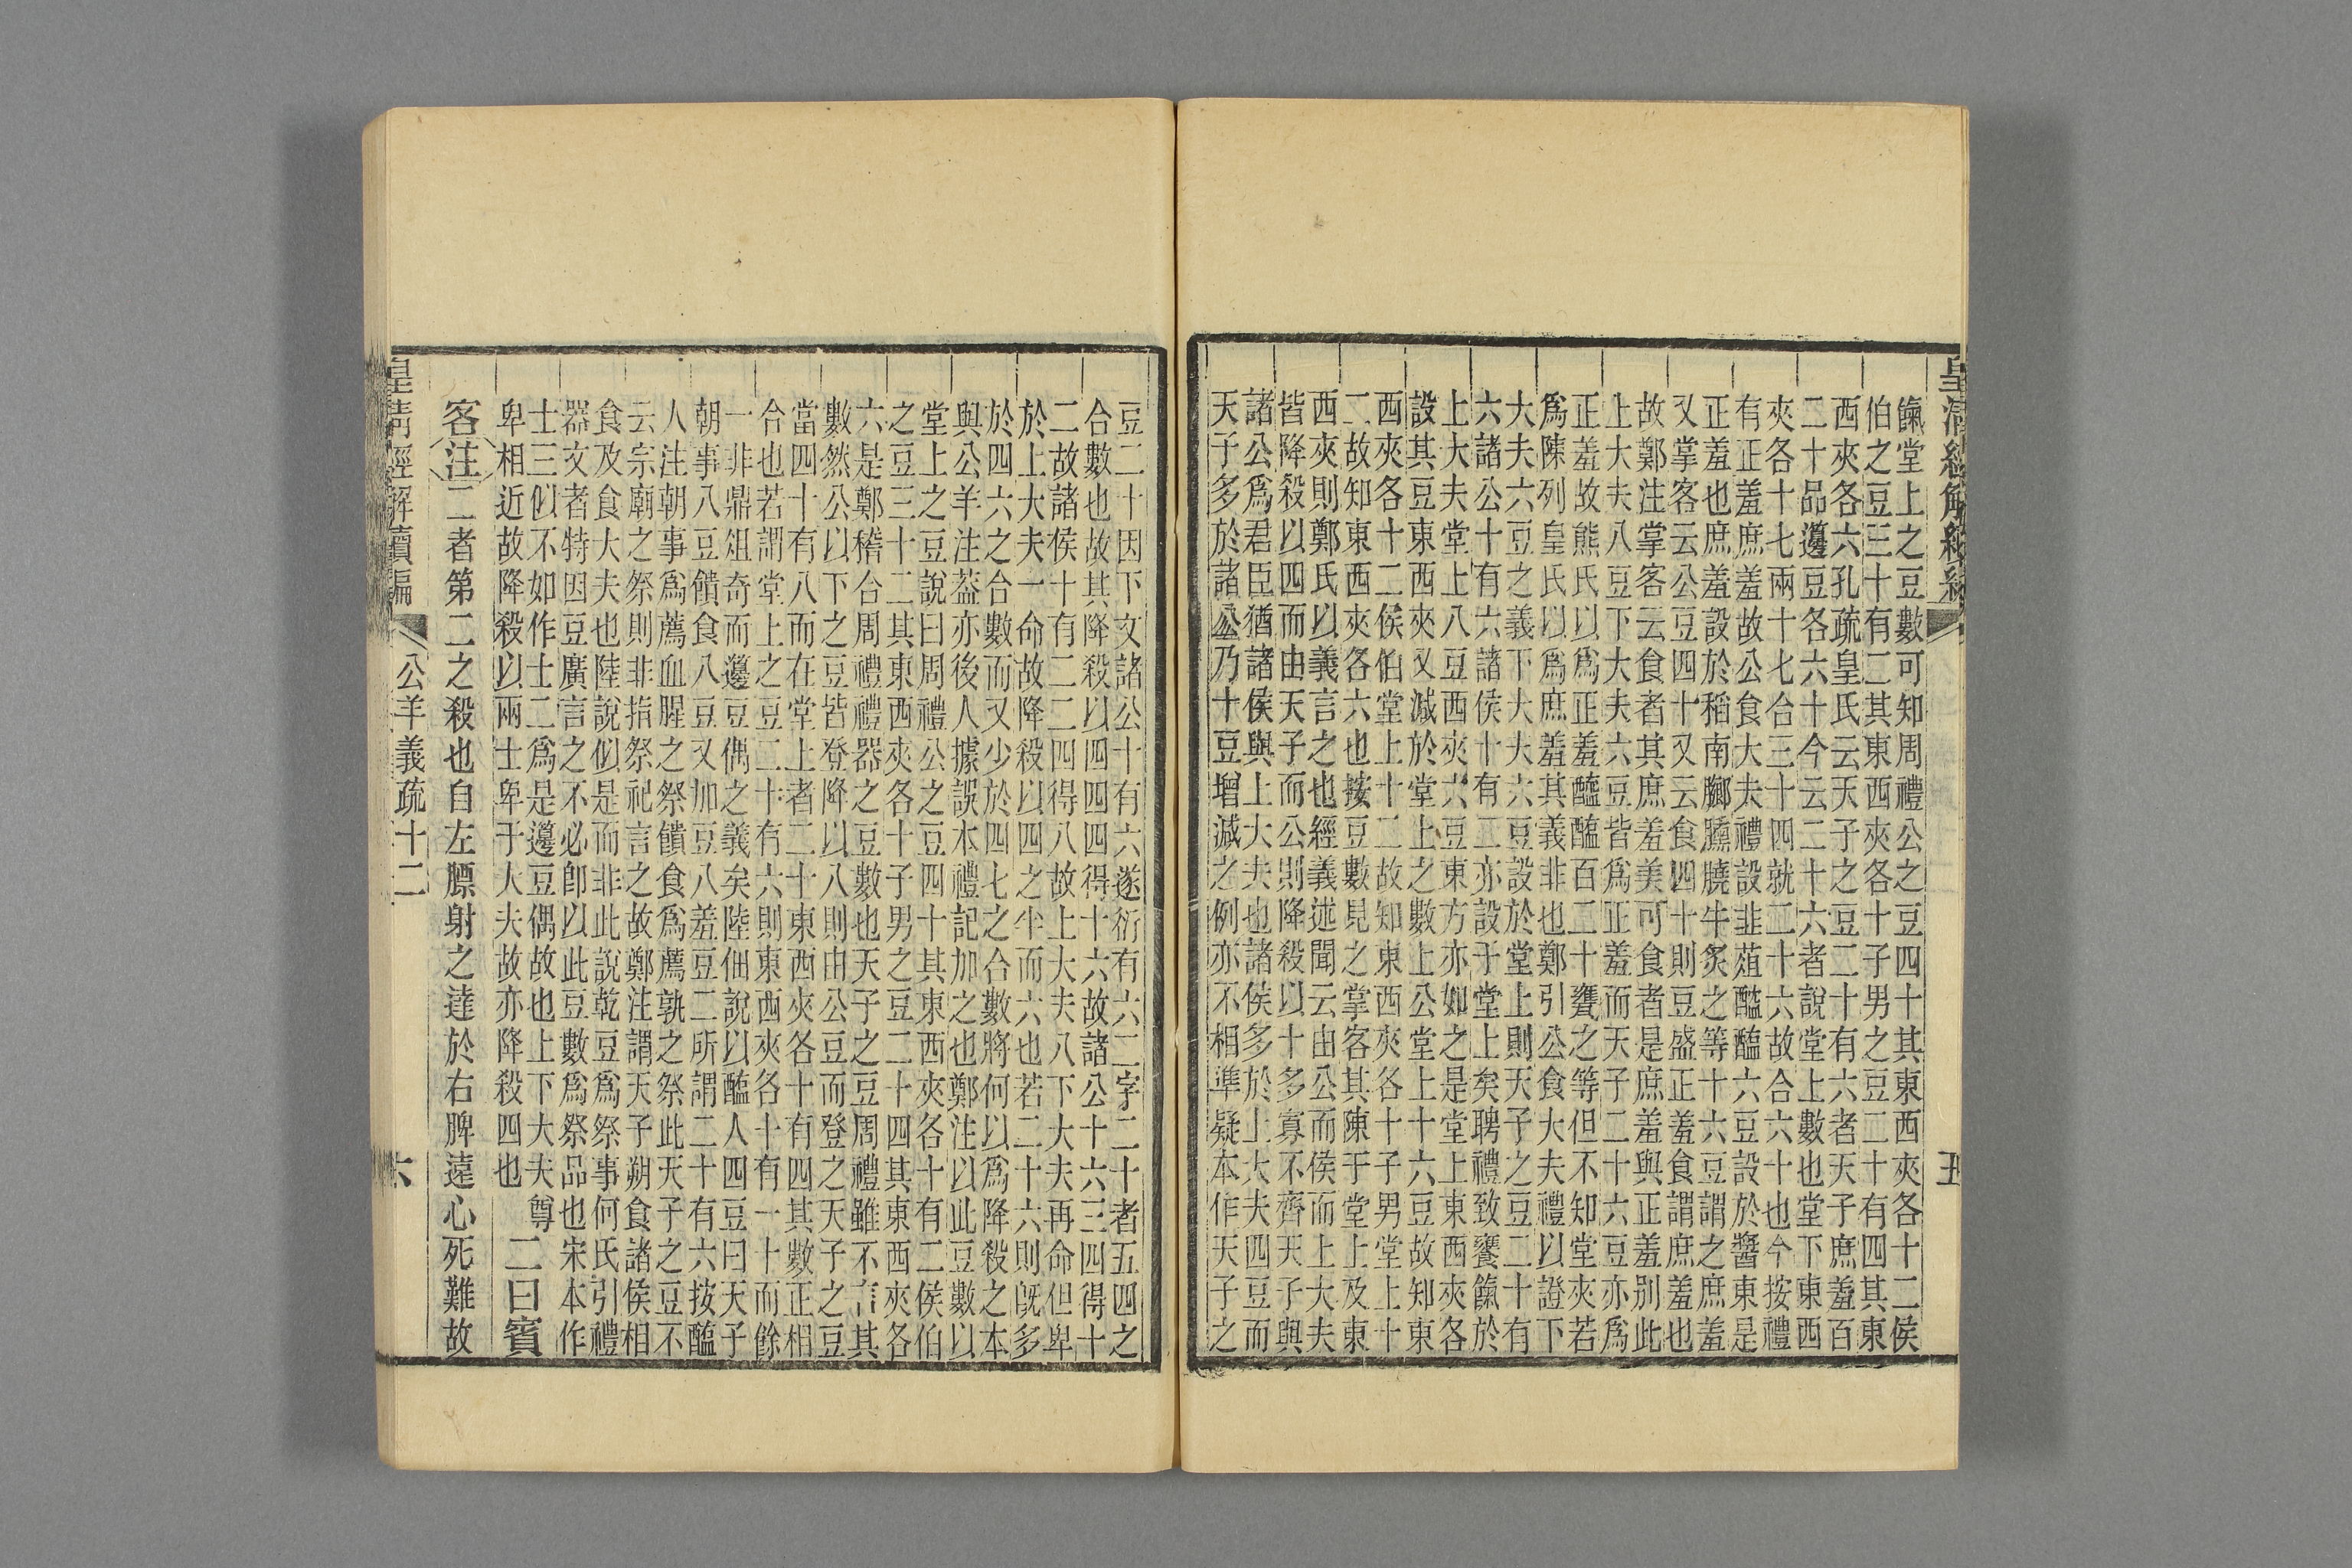 皇清經解續編
五
餼堂上之豆數可知周禮公之豆四十其東西夾各十二侯
伯之豆三十有二其東西夾各十子男之豆二十有四其東
西夾各六孔疏皇氏云天子之豆二十有六者天子庶羞百
二十品籩豆各六十今云二十六者說堂上數也堂下東西
夾各十七兩十七合三十四就二十六故合六十也今按禮
有正羞庶羞故公食大夫禮設韭菹醓醢六豆設於醬東是
正羞也庶羞設於稻南膷臐膮牛炙之等十六豆謂之庶羞
又掌客云公豆四十又云食四十則豆盛正羞食謂庶羞也
故鄭注掌客云食者其庶羞美可食者是庶羞與正羞別此
上大夫八豆下大夫六豆皆爲正羞而天子二十六豆亦爲
正羞故熊氏以爲正羞醯醢百二十罋之等但不知堂夾若
爲陳列皇氏以爲庶羞其義非也鄭引公食大夫禮以證下
大夫六豆之義下大夫六豆設於堂上則天子之豆二十有
六諸公十有六諸侯十有二亦設于堂上矣聘禮致饔餼於
上大夫堂上八豆西夾六豆東方亦如之是堂上東西夾各
設其豆東西夾又減於堂上之數上公堂上十六豆故知東
西夾各十二侯伯堂上十二故知東西夾各十子男堂上十
二故知東西夾各六也按豆數見之掌客其陳于堂上及東
西夾則鄭氏以義言之也經義述聞云由公而侯而上大夫
皆降殺以四而由天子而公則降殺以十多寡不齊天子與
諸公爲君臣猶諸侯與上大夫也諸侯多於上大夫四豆而
天子多於諸公乃十豆增減之例亦不相準疑本作天子之
豆二十因下文諸公十有六遂衍有六二字二十者五四之
合數也故其降殺以四四四得十六故諸公十六三四得十
二故諸侯十有二二四得八故上大夫八下大夫再命但卑
於上大夫一命故降殺以四之半而六也若二十六則旣多
於四六之合數而又少於四七之合數將何以爲降殺之本
與公羊注葢亦後人據誤本禮記加之也鄭注以此豆數以
堂上之豆說曰周禮公之豆四十其東西夾各十有二侯伯
之豆三十二其東西夾各十子男之豆二十四其東西夾各
六是鄭稽合周禮禮器之豆數也天子之豆周禮雖不言其
數然公以下之豆皆登降以八則由公豆而登之天子之豆
當四十有八而在堂上者二十東西夾各十有四其數正相
合也若謂堂上之豆二十有六則東西夾各十有一十而餘
一非鼎俎奇而籩豆偶之義矣陸佃說以醢人四豆曰天子
朝事八豆饋食八豆又加豆八羞豆二所謂二十有六按醢
人注朝事爲薦血腥之祭饋食爲薦孰之祭此天子之豆不
云宗廟之祭則非指祭祀言之故鄭注謂天子朔食諸侯相
食及食大夫也陸說似是而非此說乾豆爲祭事何氏引禮
器文者特因豆廣言之不必卽以此豆數爲祭品也宋本作
士三似不如作士二爲是籩豆偶故也上下大夫尊
卑相近故降殺以兩士卑于大夫故亦降殺四也
二曰賓
客注二者第二之殺也自左膘射之達於右脾遠心死難故
皇清經解續編
公羊義疏十二
六